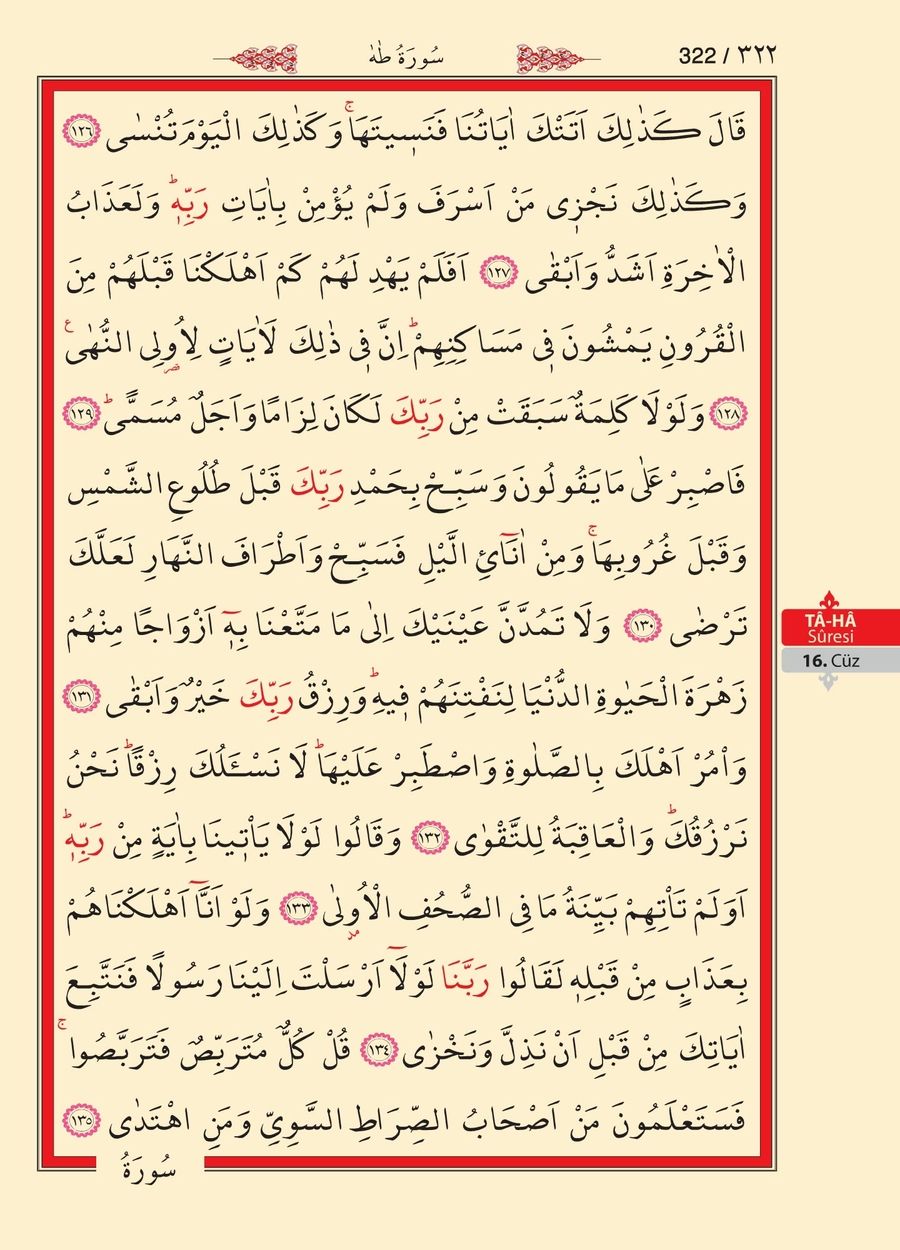 سُورَةُ طٰهٰ
322 / ٣٢٢
قَالَ كَذٰلِكَ اَتَتْكَ اٰيَاتُنَا فَنَس۪يتَهَاۚ وَكَذٰلِكَ الْيَوْمَ تُنْسٰى ١٢٦
وَكَذٰلِكَ نَجْز۪ي مَنْ اَسْرَفَ وَلَمْ يُؤْمِنْ بِاٰيَاتِ رَبِّه۪ۜ وَلَعَذَابُ
الْاٰخِرَةِ اَشَدُّ وَاَبْقٰى ١٢٧ اَفَلَمْ يَهْدِ لَهُمْ كَمْ اَهْلَكْنَا قَبْلَهُمْ مِنَ
الْقُرُونِ يَمْشُونَ ف۪ي مَسَاكِنِهِمْۜ اِنَّ ف۪ي ذٰلِكَ لَاٰيَاتٍ لِاُو۬لِي النُّهٰى۟
١٢٨ وَلَوْلَا كَلِمَةٌ سَبَقَتْ مِنْ رَبِّكَ لَكَانَ لِزَامًا وَاَجَلٌ مُسَمًّىۜ ١٢٩
فَاصْبِرْ عَلٰى مَا يَقُولُونَ وَسَبِّحْ بِحَمْدِ رَبِّكَ قَبْلَ طُلُوعِ الشَّمْسِ
وَقَبْلَ غُرُوبِهَاۚ وَمِنْ اٰنَٓائِ الَّيْلِ فَسَبِّحْ وَاَطْرَافَ النَّهَارِ لَعَلَّكَ
تَرْضٰى ١٣٠ وَلَا تَمُدَّنَّ عَيْنَيْكَ اِلٰى مَا مَتَّعْنَا بِه۪ٓ اَزْوَاجًا مِنْهُمْ
زَهْرَةَ الْحَيٰوةِ الدُّنْيَا لِنَفْتِنَهُمْ ف۪يهِۜ وَرِزْقُ رَبِّكَ خَيْرٌ وَاَبْقٰى ١٣١
وَأْمُرْ اَهْلَكَ بِالصَّلٰوةِ وَاصْطَبِرْ عَلَيْهَاۜ لَا نَسْـَٔلُكَ رِزْقًاۜ نَحْنُ
نَرْزُقُكَۜ وَالْعَاقِبَةُ لِلتَّقْوٰى ١٣٢ وَقَالُوا لَوْلَا يَأْت۪ينَا بِاٰيَةٍ مِنْ رَبِّه۪ۜ
اَوَلَمْ تَأْتِهِمْ بَيِّنَةُ مَا فِي الصُّحُفِ الْاُو۫لٰى ١٣٣ وَلَوْ اَنَّٓا اَهْلَكْنَاهُمْ
بِعَذَابٍ مِنْ قَبْلِه۪ لَقَالُوا رَبَّنَا لَوْلَٓا اَرْسَلْتَ اِلَيْنَا رَسُولًا فَنَتَّبِعَ
اٰيَاتِكَ مِنْ قَبْلِ اَنْ نَذِلَّ وَنَخْزٰى ١٣٤ قُلْ كُلٌّ مُتَرَبِّصٌ فَتَرَبَّصُواۚ
فَسَتَعْلَمُونَ مَنْ اَصْحَابُ الصِّرَاطِ السَّوِيِّ وَمَنِ اهْتَدٰى ١٣٥
سُورَةُ
TÂ-HÂ
Sûresi
16. Cüz